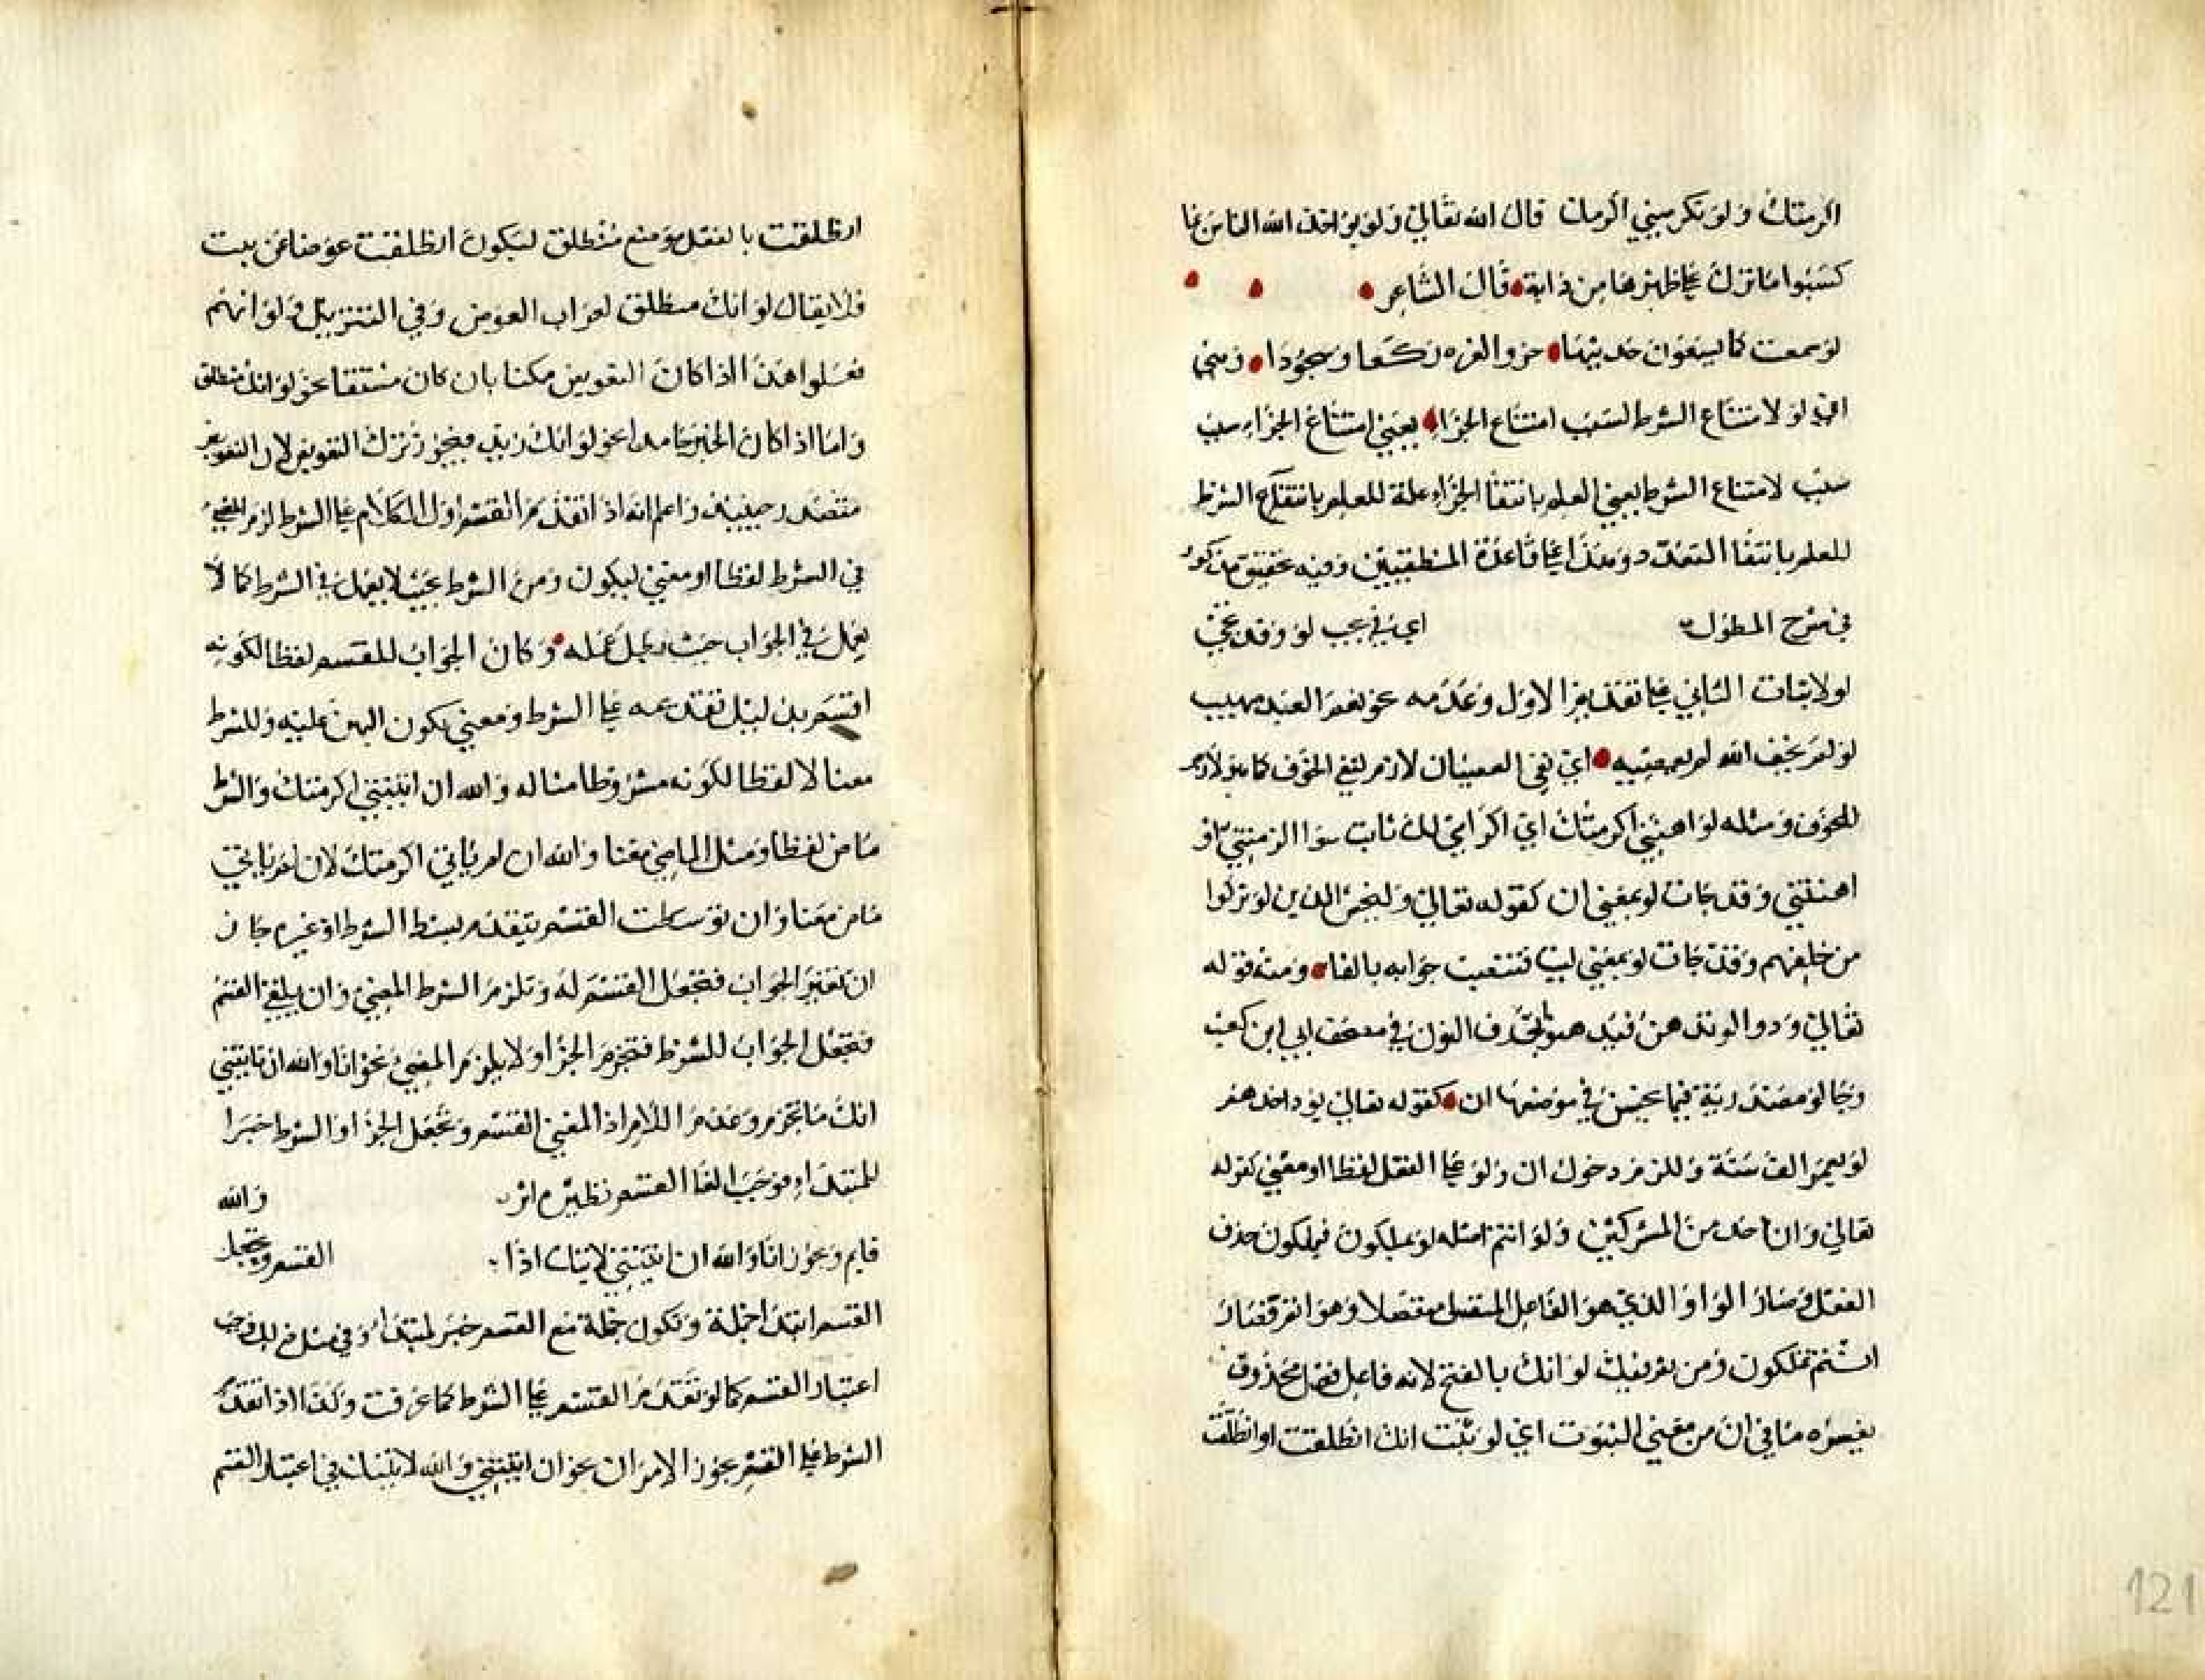 اكرمتك ولو تكرمني اكرمك قال الله تعالى ولو يواخذ الله الناس بما
كسبوا ما ترك على ظهرها من دابة قال الشاعر
لو سمعت كما يسعون حديثها خروا لعزه ركعا وسجودا
لو لامتناع الشرط لسبب امتناع الجزا يعني امتناع الجزاء سبب
سبب لامتناع الشرط يعني العلم بانتفا الجزاء علة للعلم بانتفاء الشرط
للعلم بانتفا التعدد وهذا على قاعدة المنطقيين وفيه تحقيق مذكور
في شرح المطول اي في لو وقد تجي
لو لاثبات الثاني على تقدير الاول وعدمه نحو نعم العبد صهيب
لو لم يخف الله لم يعصيه اي نفي العصيان لازم لنفي الخوف كما هو لازم
للخوف ومثله لو اهنتني اكرمتك اي اكرامي لك ثابت سوا اكرمتني او
اهنتني وقد جات لو بمعنى ان كقوله تعالى وليخش الذين لو تركوا
من خلفهم وقد جات لو بمعنى ليت فتنصب جوابه بالفا ومنه قوله
تعالى ودوا لو تدهن فيدهنوا بحذف النون في مصحف ابي ابن كعب
وجا لو مصدرية فيما يحسن في موضعها ان كقوله تعالى يود احدهم
لو يعمر الف سنة وللزم دخول ان ولو على الفعل لفظا او معنى كقوله
تعالى وان احد من المشركين ولو انتم اصله لو تملكون فيملكون حذف
الفعل وصار الواو الذي هو الفاعل المتصل منفصلا وهو انتم فصار
انتم تملكون ومن ثم قيل لو انك بالفتح لانه فاعل فعل محذوف
يفسره ما في ان من معنى الثبوت اي لو ثبت انك انطلقت او انطلقت
انطلقت بالفعل موضع منطلق ليكون انطلقت عوضا عن ثبت
فلا يقال لو انك منطلق لعراب العوض وفي التنزيل ولو انهم
فعلوا هذا اذا كان التعويض ممكنا بان كان مشتقا نحو لو انك منطلق
واما اذا كان الخبر جامدا نحو لو انك زيد فيجوز ترك التعويض لان التعويض
متعذر حينيذ واعلم انه اذا تقدم القسم اول الكلام على الشرط لزم المضي
في الشرط لفظا او معنى ليكون ومن الشرط بحيث لا يعمل في الشرط كما لا
يعمل في الجواب حيث بطل عمله وكان الجواب للقسم لفظا لكونه
اقسم بدليل تقدمه على الشرط ومعنى لكون اليمين عليه وللشرط
معنا لا لفظا لكونه مشروطا مثاله والله ان اتيتني اكرمتك والشرط
ماض لفظا ومثل الماضي معنا والله ان لم ياتي اكرمتك لان لم ياتي
ماض معنا وان توسطت القسم بتقدم الشرط او غيره جاز
ان تعتبر الجواب فتجعل القسم له وتلزم الشرط المضي وان يلغى القسم
فتجعل الجواب للشرط فتجزم الجزا ولا يلزم المضي نحو انا والله ان تاتيني
انك ما تجزم وعدم اللام اذا المعنى القسم وتجعل الجزا او الشرط خبرا
للمبتدا ووجب الغا القسم نظيره والله
قايم ونحو انا والله ان اتيتني لاتينك اذا القسم وتجعل
القسم ابتدا جملة وتكون جملة مع القسم خبر لمبتدا وفي مثل ذلك وجب
اعتبار القسم كما لو تقدم القسم على الشرط كما عرفت وكذا اذا تقدم
الشرط على القسم يجوز الامران نحو ان اتيتني والله لاتينك في اعتبار القسم
121